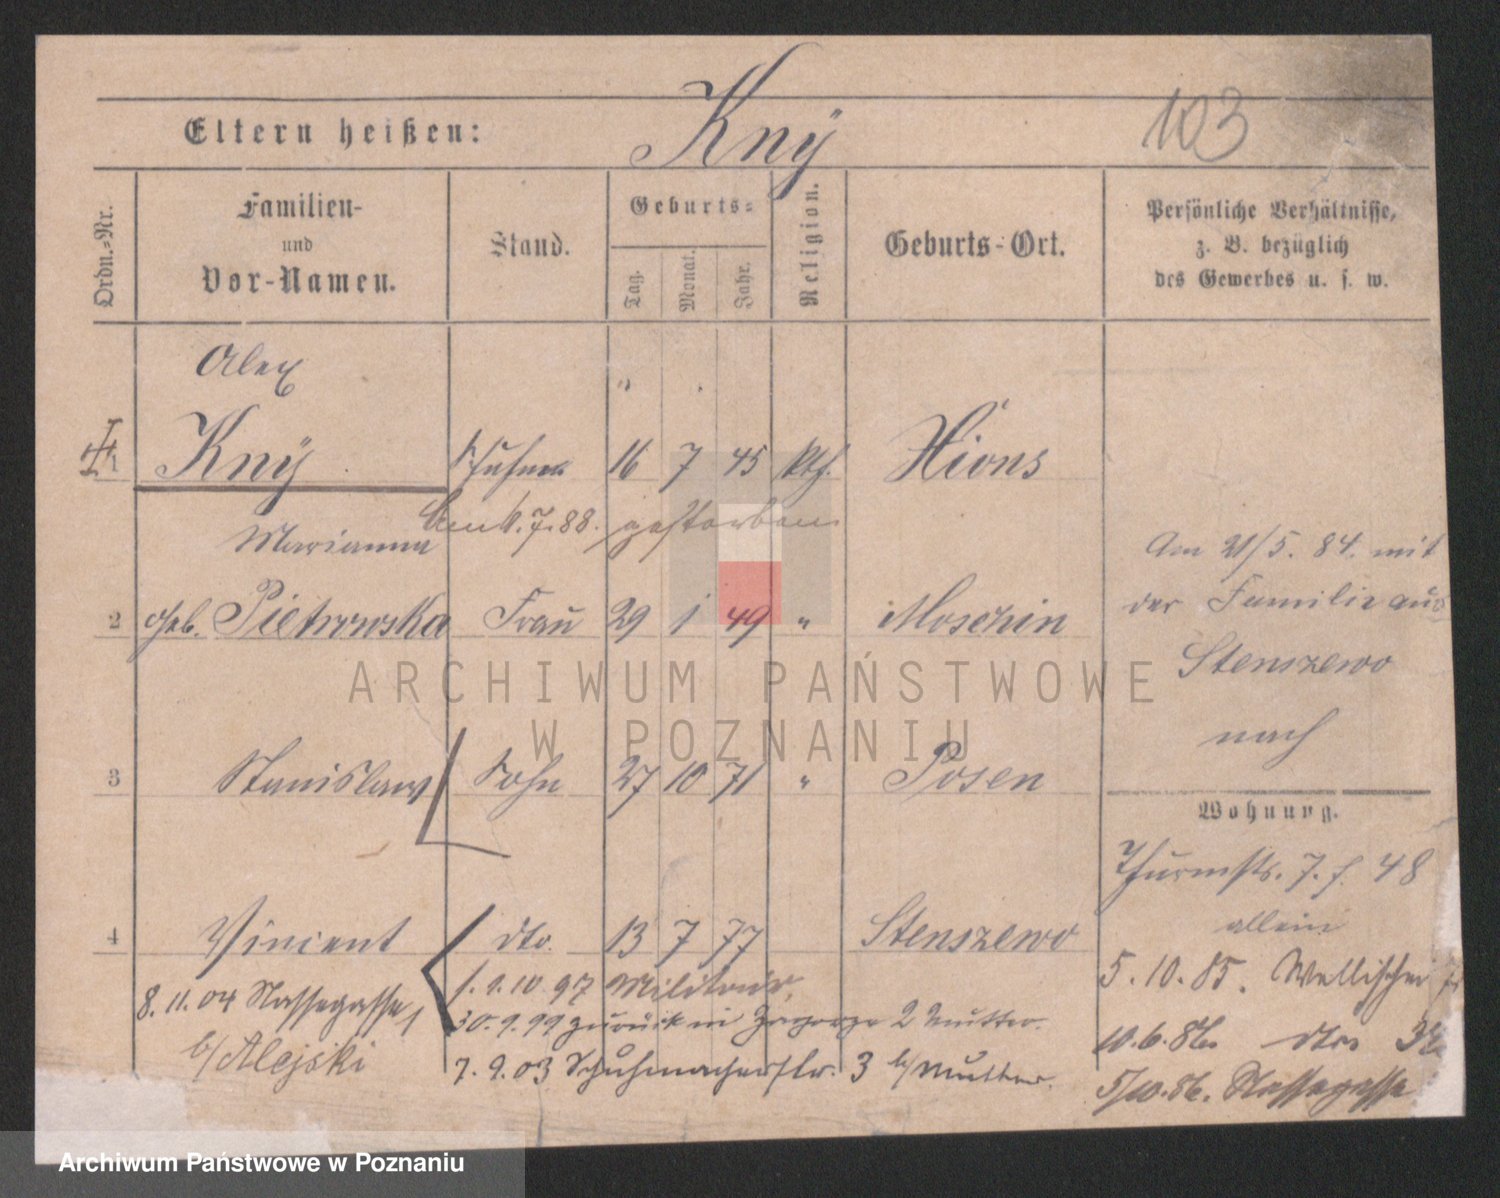 Eltern heißen: Kny 103
Ordn.-Nr. Familien- und Vor-Namen. Stand. Geburts- Tag. Monat. Jahr. Religion. Geburts-Ort. Persönliche Verhältnisse, z. B. bezüglich des Gewerbes u. s. w.
Alex
1 Kny 16 7 45 kth. Xions
7. 88. gestorben
Marianna
2 geb. Pietrowska Frau 29 1 49 " Moschin
Am 21/5. 84. mit
der Familie aus
Stenszewo
nach
3 Stanislaw Sohn 27 10 71 " Posen
Wohnung.
Thurmstr. 7. 48
allein
4 Vincent dto. 13 7 77 Stenszewo
5. 10. 85. Wallischei
10. 6. 86. dto
5/10. 86. Nassegasse
8. 11. 04 Nassegasse 1
b/ Alejski
1. 10 97 Militair,
30. 9. 99 zurück in 2 Mutter.
7. 9. 03 Schuhmacherstr. 3 b/ Mutter.
ARCHIWUM PAŃSTWOWE
W POZNANIU
Archiwum Państwowe w Poznaniu